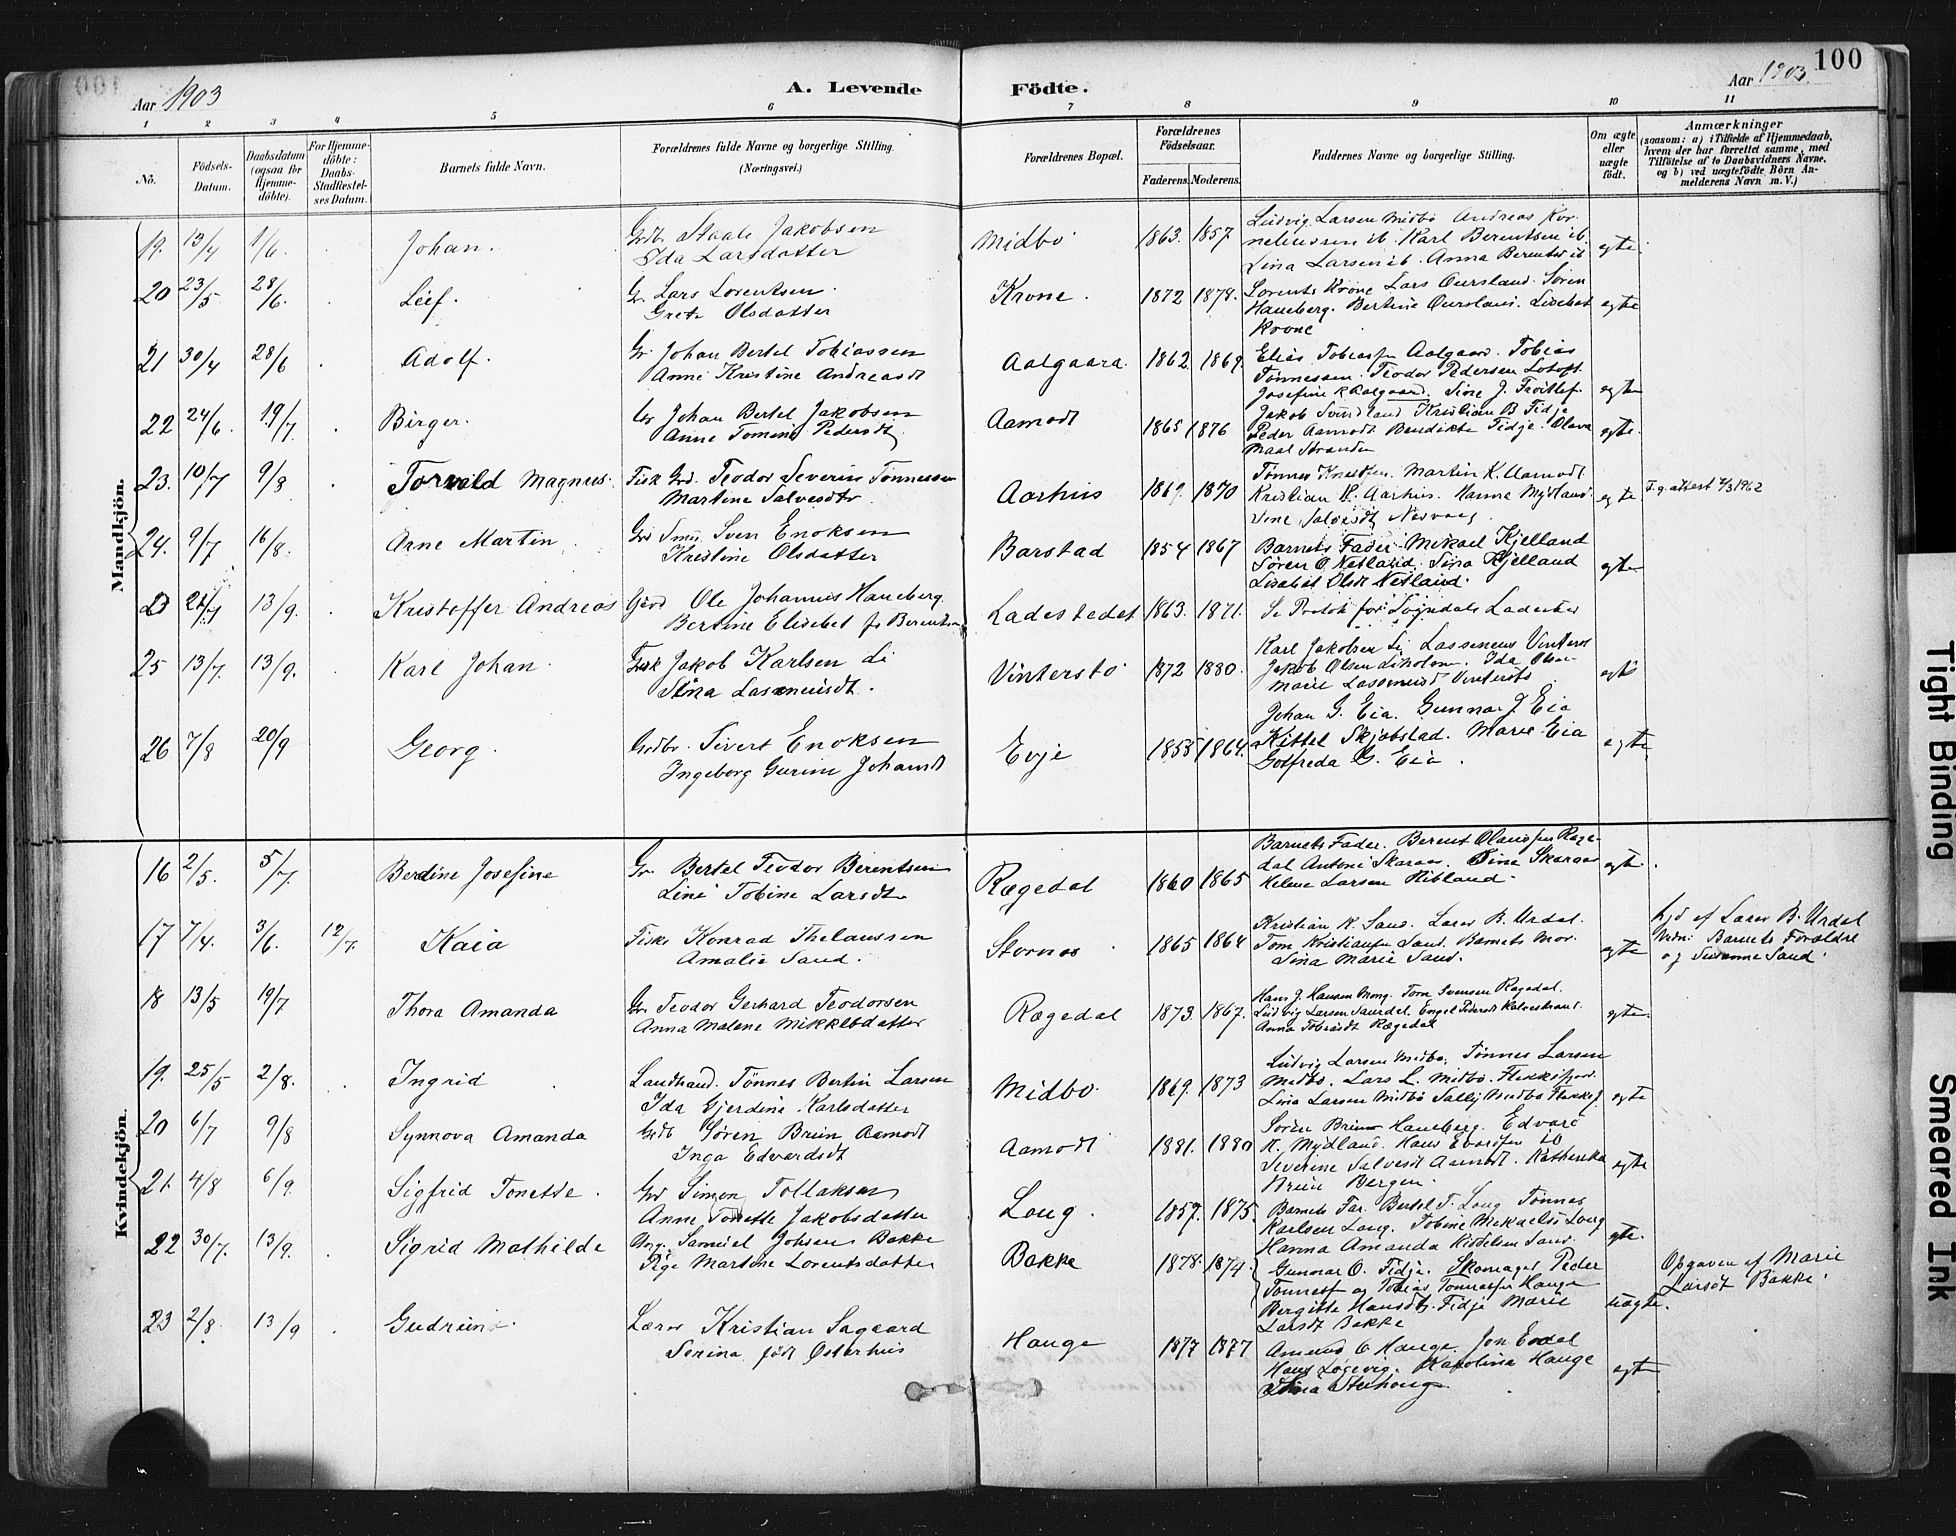 100
Aar 1903
A. Levende Födte.
Aar 1903.
1 2 3 4 5 6 7 8 9 10 11
No.
Födsels-
Datum.
Daabsdatum
(ogsaa for
Hjemme-
döbte).
For Hjemme-
döbte:
Daabs-
Stadfæstel-
ses Datum.
Barnets fulde Navn.
Forældrenes fulde Navne og borgerlige Stilling.
(Næringsvei.)
Forældrenes Bopæl.
Forældrenes
Födselsaar.
Faderens. Moderens.
Faddernes Navne og borgerlige Stilling.
Om ægte
eller
uægte
født.
Anmærkninger
(saasom: a) i Tilfælde af Hjemmedaab,
hvem der har forrettet samme, med
Tilföielse af to Daabsvidners Navne,
og b) ved uægtefödte Börn An-
melderens Navn m. V.)
Mandkjön.
19. 13/4 1/6. Johan. Grdb. Staale Jakobsen
Ida Larsdatter
Midbö 1863. 1857
Ludvig Larsen Midbö Andreas Kor-
neliussen ib. Karl Berentsen ib.
Lina Larsen ib. Anna Berentsd ib
egte
20 23/5 28/6. Leif. G. Lars Lorentsen
Grete Olsdatter
Krone. 1872 1878.
Lorents Krone Lars Oursland. Sören
Haneberg. Bertine Oursland. Lisebet
Krone
egte
21 30/4 28/6 Adolf. Gr. Johan Bertel Tobiassen
Anne Kristine Andreasdt
Aalgaard. 1862. 1869.
Elias Tobiassen Aalgaard. Tobias
Tönnessen. Teodor Pedersen
Josefine Aalgaard. Sine J.
egte
22 24/6. 19/7. Birger. Johan Bertel Jakobsen
Anne Tomine Pedersdt
Aamodt 1865 1876
Jakob Svindland Kristian B Fidje
Peder Aamodt Bendikte Fidje. Olava
Maal Stranden
egte
23. 10/7 9/8 Torvald Magnus. Fisk Grd. Teodor Severin Tönnessen
Martine Salvesdtr.
Aarhus 1869. 1870
Tönnes Knudsen. Martin K. Aamodt
Kristian K. Aarhus. Hanna Mydland.
Sine Salvesdt Nesvaag
egte
F. g. attest 1962
24. 9/7 16/8. Arne Martin. Grd Smed Sven Enoksen
Kristine Olsdatter
Barstad 1854 1867
Barnets Fader Mikael Kjelland
Sören O Netland. Sina Kjelland
Lisabet Olsdt Netland.
egte
13/9. Kristoffer Andreas Gard Ole Johannes Haneberg
Bertine Elisebet f. Berentsen
Ladestedet 1863. 1871.
Se Protok for Sogndals Ladested
25 13/7. 13/9. Karl Johan. Fisk Jakob Karlsen Li
Sina Lassemisdt.
Vinterstö 1872 1880.
Karl Jakobsen Li Lassemus Vinterst
Jakob Olsen Liholmen. Ida Olsen
Marie Lassemisdt Vinterstö
egte
26 7/8 20/9 Georg. Grdbr. Sivert Enoksen
Ingeborg Gurine Johansdt
Evje 1855 1864.
Johan G. Eia. Gunnar J. Eia
Kittel Skjöbstad. Marie Eia
Gotfreda G. Eia.
egte
Kvindekjön.
16 2/5. 5/7. Berdine Josefine Gr. Bertel Teodor Berentsen
Line Tobine Larsdtr
Rægedal 1860 1865
Barnets Fader. Berent Olaussen Rage-
dal Antoni Skaraas. Sine Skaraas
Helene Larsen Hibland.
egte.
17 7/4. 3/6. 12/7. Kaia Fisk. Konrad Thelaussen
Amalie Sand.
Stornes 1865 1864
Kristian K. Sand. Lars B. Urdal.
Tom Kristiansen Sand. Barnets Mor.
Sina Marie Sand.
egte
hjd af Lars B. Urdal
Vidn: Barnets Forældre
og Susanne Sand.
18 13/5 19/7 Thora Amanda Gr. Teodor Gerhard Teodorsen
Anna Malene Mikkelsdatter
Rægedal 1873. 1867.
Hans J. Hansen Mong. Tom Svensen Ragedal.
Ludvig Larsen Saurdal. Engel Pedersdt Kalvestrand.
Anna Tobiasdt Rægedal
egte.
19. 25/5 2/8. Ingrid Landhand. Tönnes Bertin Larsen
Ida Gjerdine Karlsdatter
Midbö. 1869. 1873
Ludvig Larsen Midbö, Tönnes Larsen
Midbö. Lars L. Midbö. Flekkefjord.
Lina Larsen Midbö Sally Midbö Flekkefj.
egte
20 6/7 9/8 Synnova Amanda Grdb Sören Brun Aamodt
Inga Edvardsdt
Aamodt 1881. 1880
Sören Brun Haneberg. Edvard
K. Mydland. Hans Evardsen ib
Severine Salvesdt Aamodt. Katharina
Brun Bergen.
egte
21. 4/8 6/9. Sigfrid Tonette. Grd Simon Tollaksen
Anne Tonette Jakobsdatter
Long. 1857. 1875.
Barnets Far. Bertel T. Long Tönnes
Karlsen Long. Tobine Mekaelsd Long
Hanna Amanda Kiddelsen Sand.
egte.
22 30/7. 13/9. Sigrid Mathilde Ung. Samuel Johsen Bakke
Pige Martine Lorentsdatter
Bakke 1878. 1874.
Gunnar O. Fidje. Skomager Peder
Tonnesf og Tobias Tonnessen Hauge
Bergitte Hansdt Fidje Marie
Larsdt Bakke
uægte.
Opgaven af Marie
Larsdt Bakke.
23 2/8. 13/9 Gudrun. Lærer Kristian Sagaard
Serina födt Østerhus
Hauge 1877 1877
Amund O Hauge. Jon Eedal
Hans Løgevig. Karolina Hauge
Stina
egte
Tight Binding
Smeared Ink